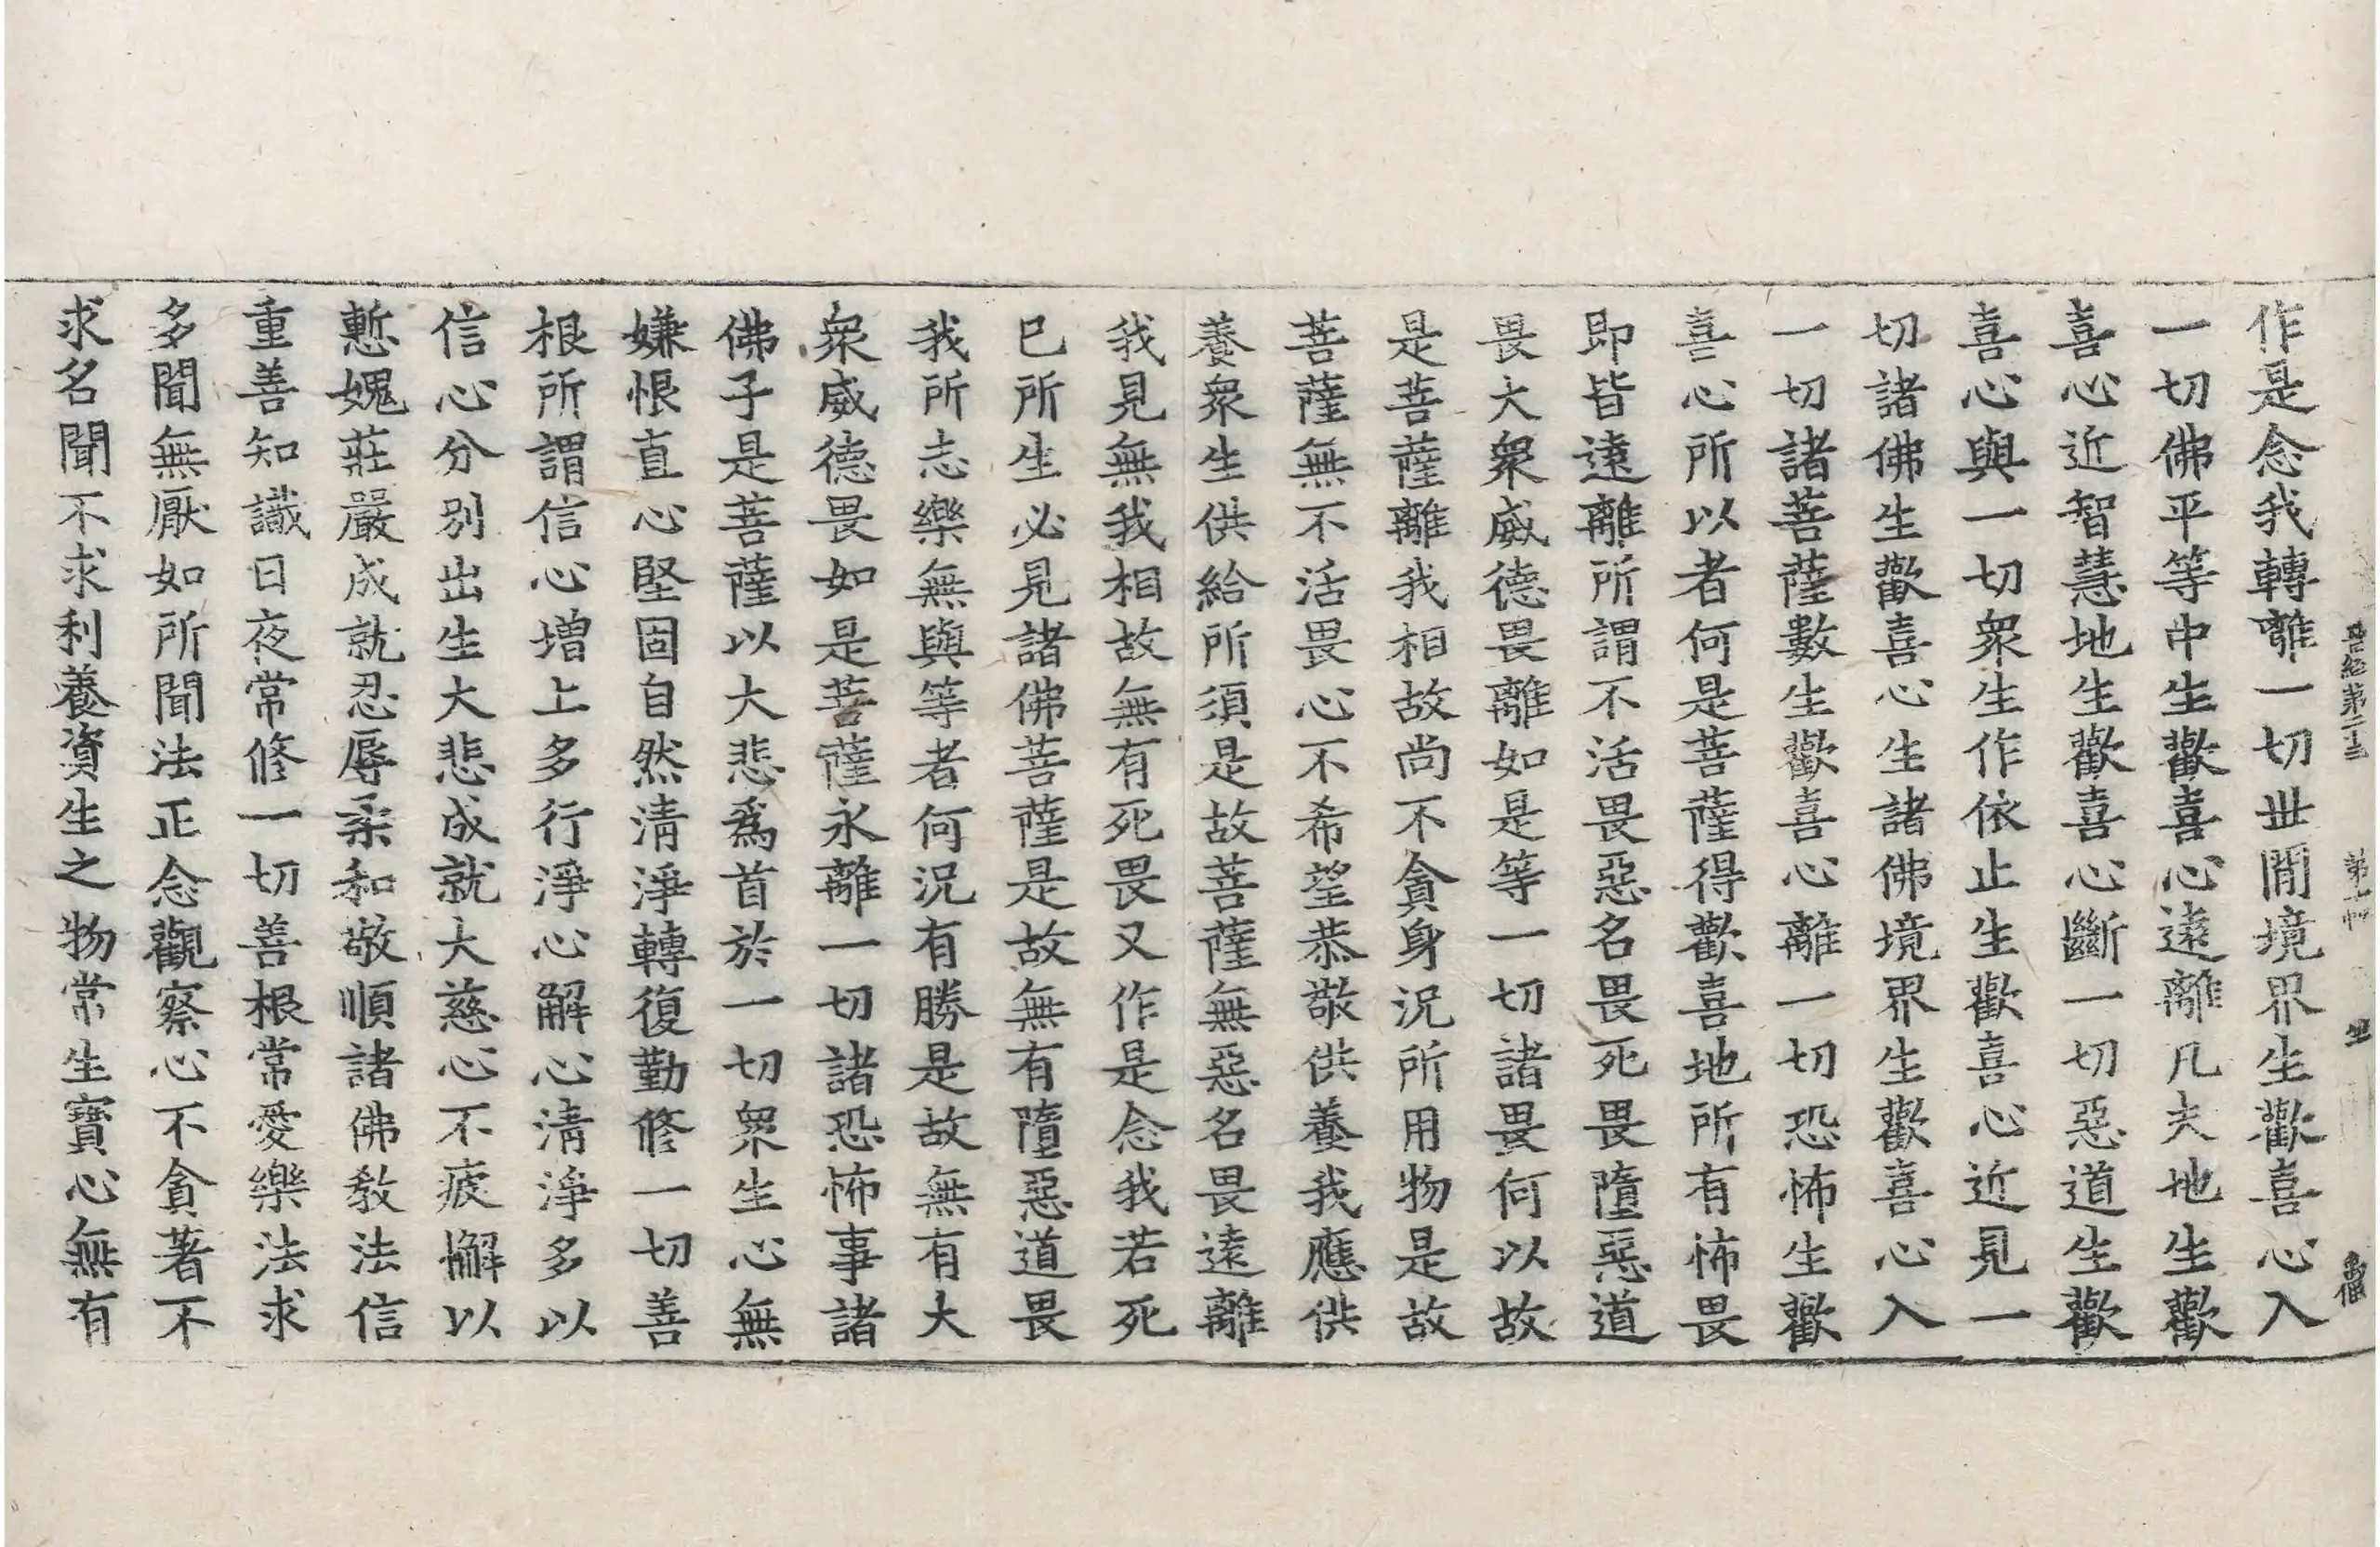 晉經第二十三 第十一 坐
作是念我轉離一切世閒境界生歡喜心入
一切佛平等中生歡喜心遠離凡夫地生歡
喜心近智慧地生歡喜心斷一切惡道生歡
喜心與一切衆生作依止生歡喜心近見一
切諸佛生歡喜心生諸佛境界生歡喜心入
一切諸菩薩數生歡喜心離一切恐怖生歡
喜心所以者何是菩薩得歡喜地所有怖畏
即皆遠離所謂不活畏惡名畏死畏墮惡道
畏大衆威德畏離如是等一切諸畏何以故
是菩薩離我相故尚不貪身況所用物是故
菩薩無不活畏心不希望恭敬供養我應供
養衆生供給所須是故菩薩無惡名畏遠離
我見無我相故無有死畏又作是念我若死
已所生必見諸佛菩薩是故無有墮惡道畏
我所志樂無與等者何況有勝是故無有大
衆威德畏如是菩薩永離一切諸恐怖事諸
佛子是菩薩以大悲爲首於一切衆生心無
嫌恨直心堅固自然清淨轉復勤修一切善
根所謂信心增上多行淨心解心清淨多以
信心分別出生大悲成就大慈心不疲懈以
慙愧莊嚴成就忍辱柔和敬順諸佛教法信
重善知識日夜常修一切善根常愛樂法求
多聞無厭如所聞法正念觀察心不貪著不
求名聞不求利養資生之物常生寶心無有